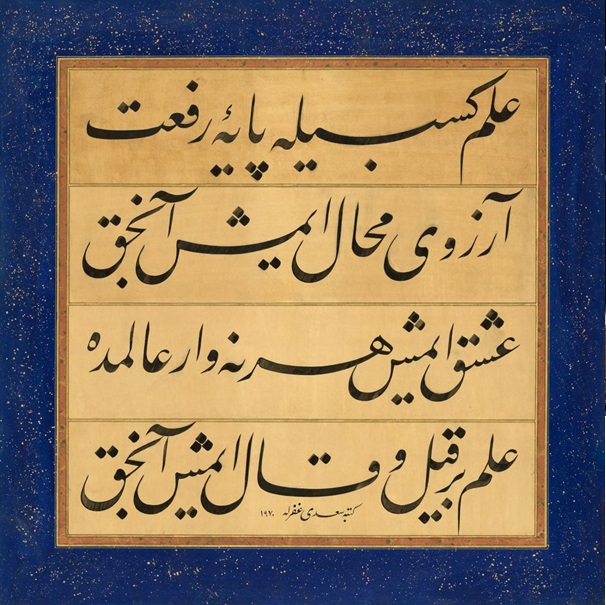 علم كسبيله پايۀ رفعت
آرزوی محال ايمش آنجق
عشق ايمش هر نه وار عالمده
علم بر قيل و قال ايمش آنجق
كتبه سعدی غفرله ١٩٧٠